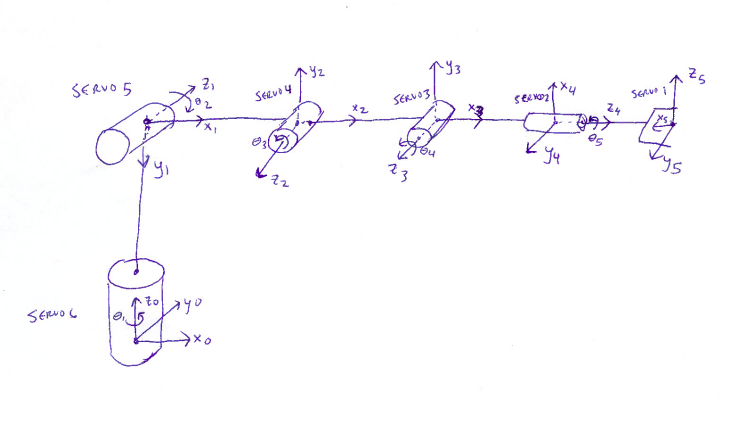 SERVO 5
z1
θ2
x1
y1
SERVO4
y2
x2
θ3
z2
SERVO3
y3
x3
θ4
z3
SERVO2
x4
z4
θ5
y4
SERVO 1
z5
x5
y5
SERVO6
θ1
z0
y0
x0